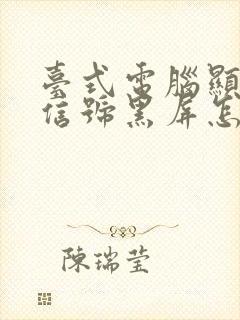 臺式電腦顯
信號黑屏怎
陳瑞瑩